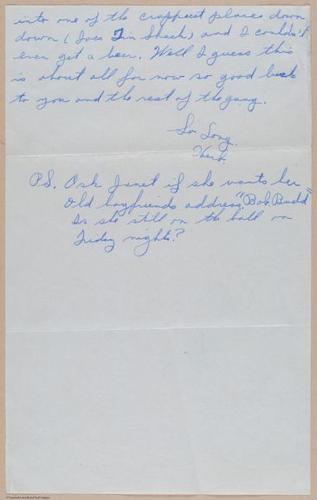 into one of the crappiest places down
down (Joes Tin Shack) and I couldn't
even get a beer. Well I guess this
is about all for now so good luck
to you and the rest of the gang.
So Long
Herb.
P.S. Ask Janet if she wants her
old boyfriends address "Bob Budd"
Is she still on the ball on
Friday nights?